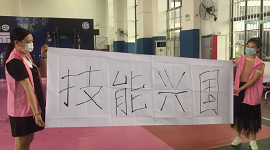 技能兴国